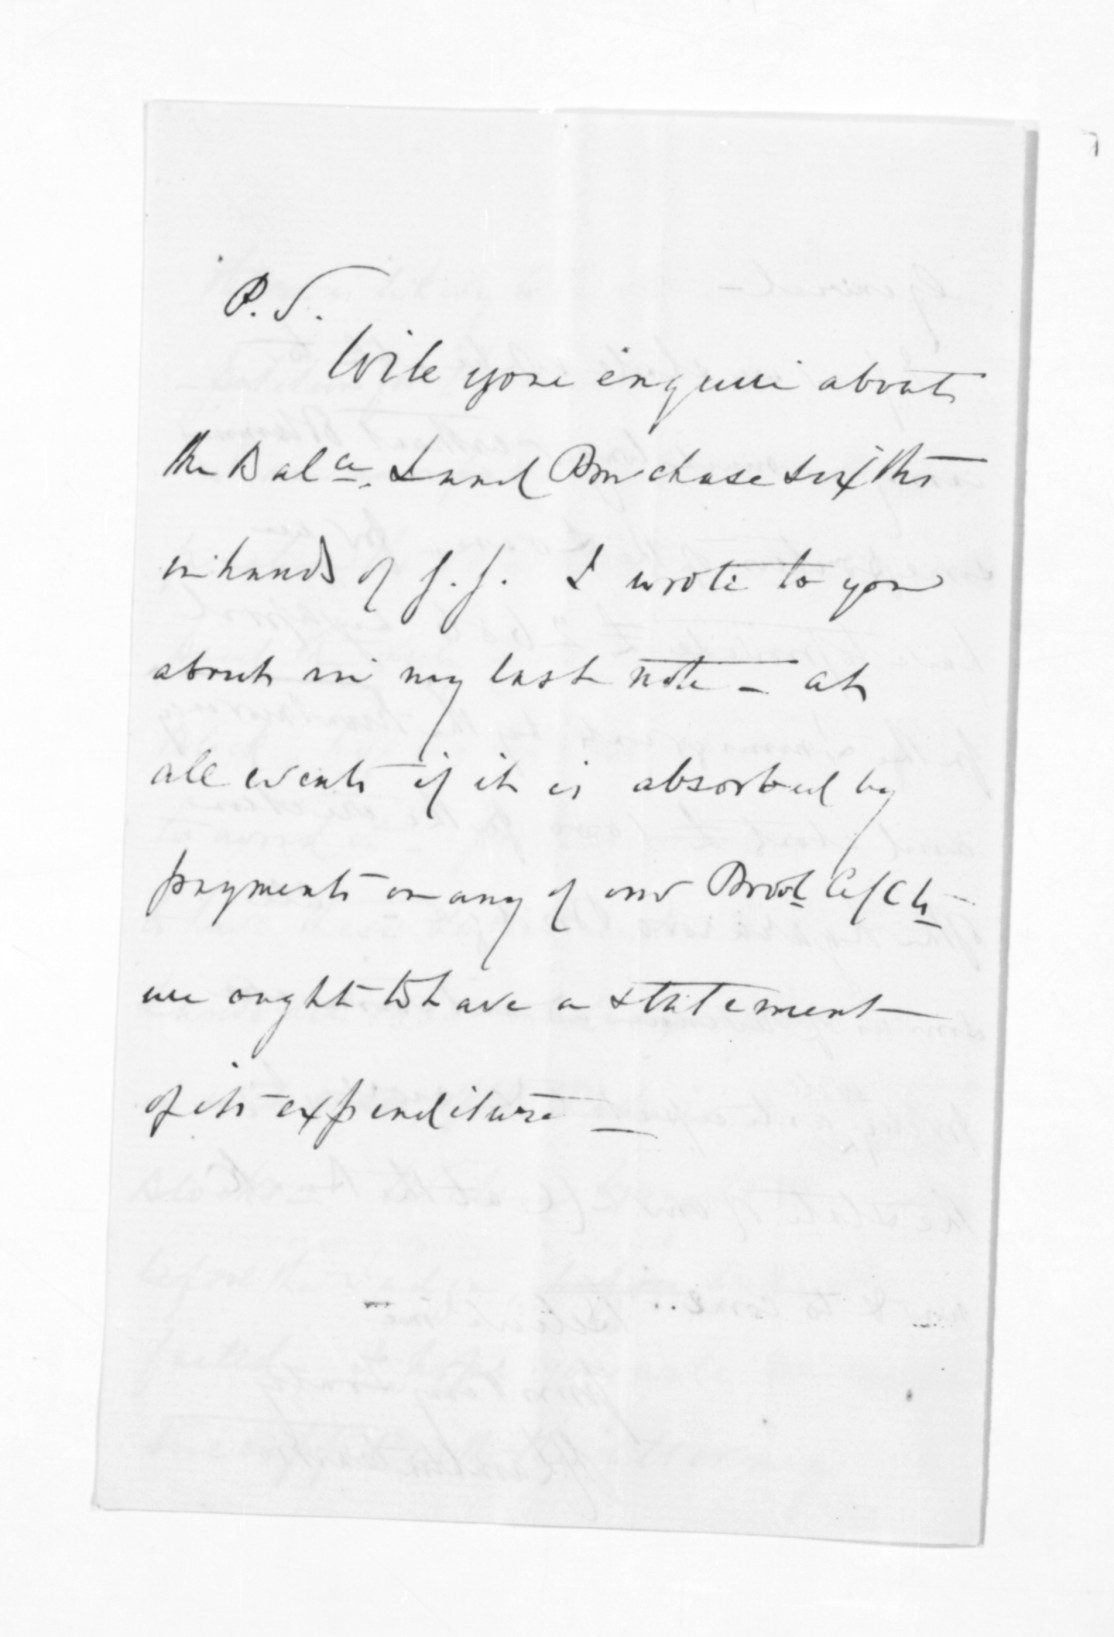 P.S.
Will you enquire about
the Balce. Land Purchase sixths
in hands of J.J. I wrote to you
about in my last note - at
all events if it is absorbed by
payments on any of our Provl A/Cts
we ought to have a statement
of its expenditure _